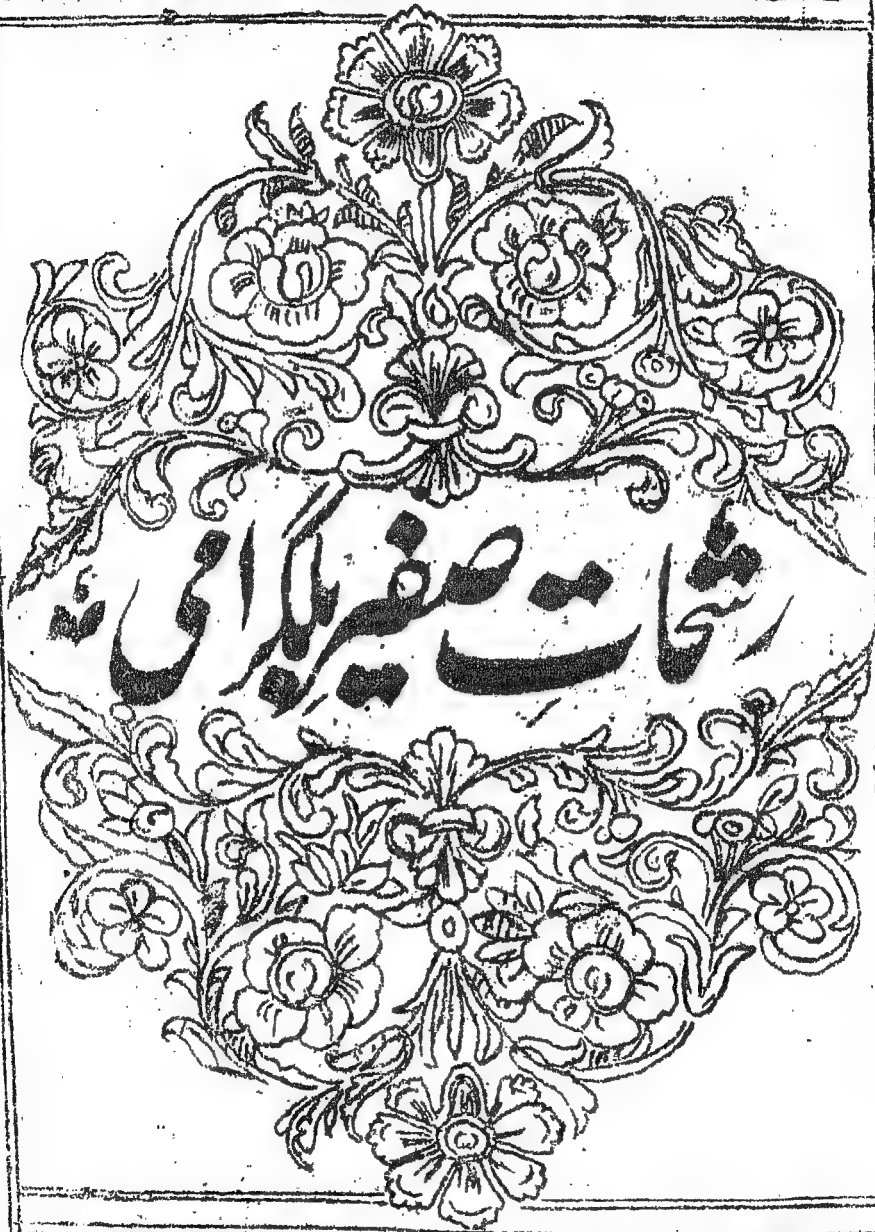 رشحات صفیر بلگرامی